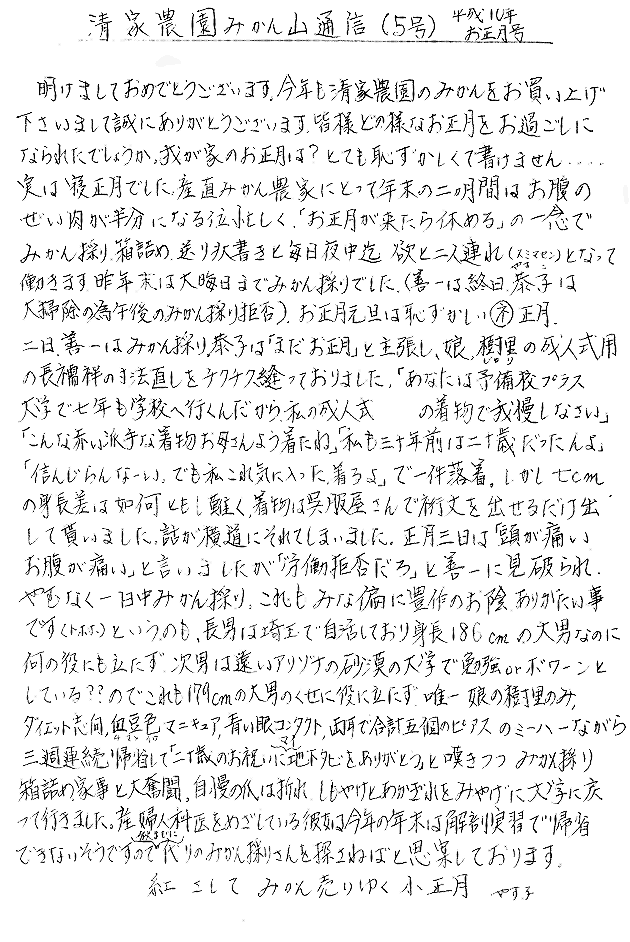 清家農園みかん山通信(5号) 平成10年 お正月号
明けましておめでとうございます。今年も清家農園のみかんをお買い上げ
下さいまして誠にありがとうございます。皆様どの様なお正月をお過ごしに
なられたでしょうか。我が家のお正月は?とても恥ずかしくて書けません.....
実は寝正月でした。産直みかん農家にとって年末の二ヶ月間はお腹の
ぜい肉が半分になる位忙しく、「お正月が来たら休める」の一念で
みかん採り、箱詰め、送り状書きと毎日夜中迄 欲と二人連れ(スミマセン)となって
働きます。昨年末は大晦日までみかん採りでした。(善一は終日、恭子は
やすこ
大掃除の為午後のみかん採り拒否)。お正月元旦は恥ずかしい㋧正月。
二日、善一はみかん採り。恭子は「まだお正月」と主張し、娘、樹里の成人式用
じゅり
の長襦袢の寸法直しをチクチク縫っておりました。「あなたは予備校プラス
大学で七年も学校へ行くんだから、私の成人式 の着物で我慢しなさい」
「こんな赤い派手な着物お母さんよう着たね」「私も三十年前は二十歳だったんよ」
「信んじらんなーい。でも私これ気に入った。着るよ」で一件落着。しかし七cm
の身長差は如何ともし難く、着物は呉服屋さんで裄丈を出せるだけ出
して貰いました。話が横道にそれてしまいました。正月三日は「頭が痛い
お腹が痛い」と言いましたが「労働拒否だろ」と善一に見破られ、
やむなく一日中みかん採り。これもみな偏に豊作のお陰 ありがたい事
です(トホホ)というのも、長男は埼玉で自活しており身長186cmの大男なのに
何の役にも立たず、次男は遠いアリゾナの砂漠の大学で勉強orボワーンと
している??のでこれも179cmの大男のくせに役に立たず 唯一 娘の樹里のみ、
ダイエット志向、血豆色マニキュア、青い眼コンタクト、両耳で合計五個のピアスのミーハーながら
三週連続帰省して「二十歳のお祝いに地下タビをありがとう」と嘆きつつ みかん採り
箱詰め家事と大奮闘、自慢の爪は折れ しもやけとあかぎれをみやげに大学に戻
って行きました。産婦人科医をめざしている彼女は今年の年末は解剖実習で帰省
できないそうですので代りのみかん採りさんを探さねばと思案しております。
紅さして みかん売りゆく 小正月 やす子